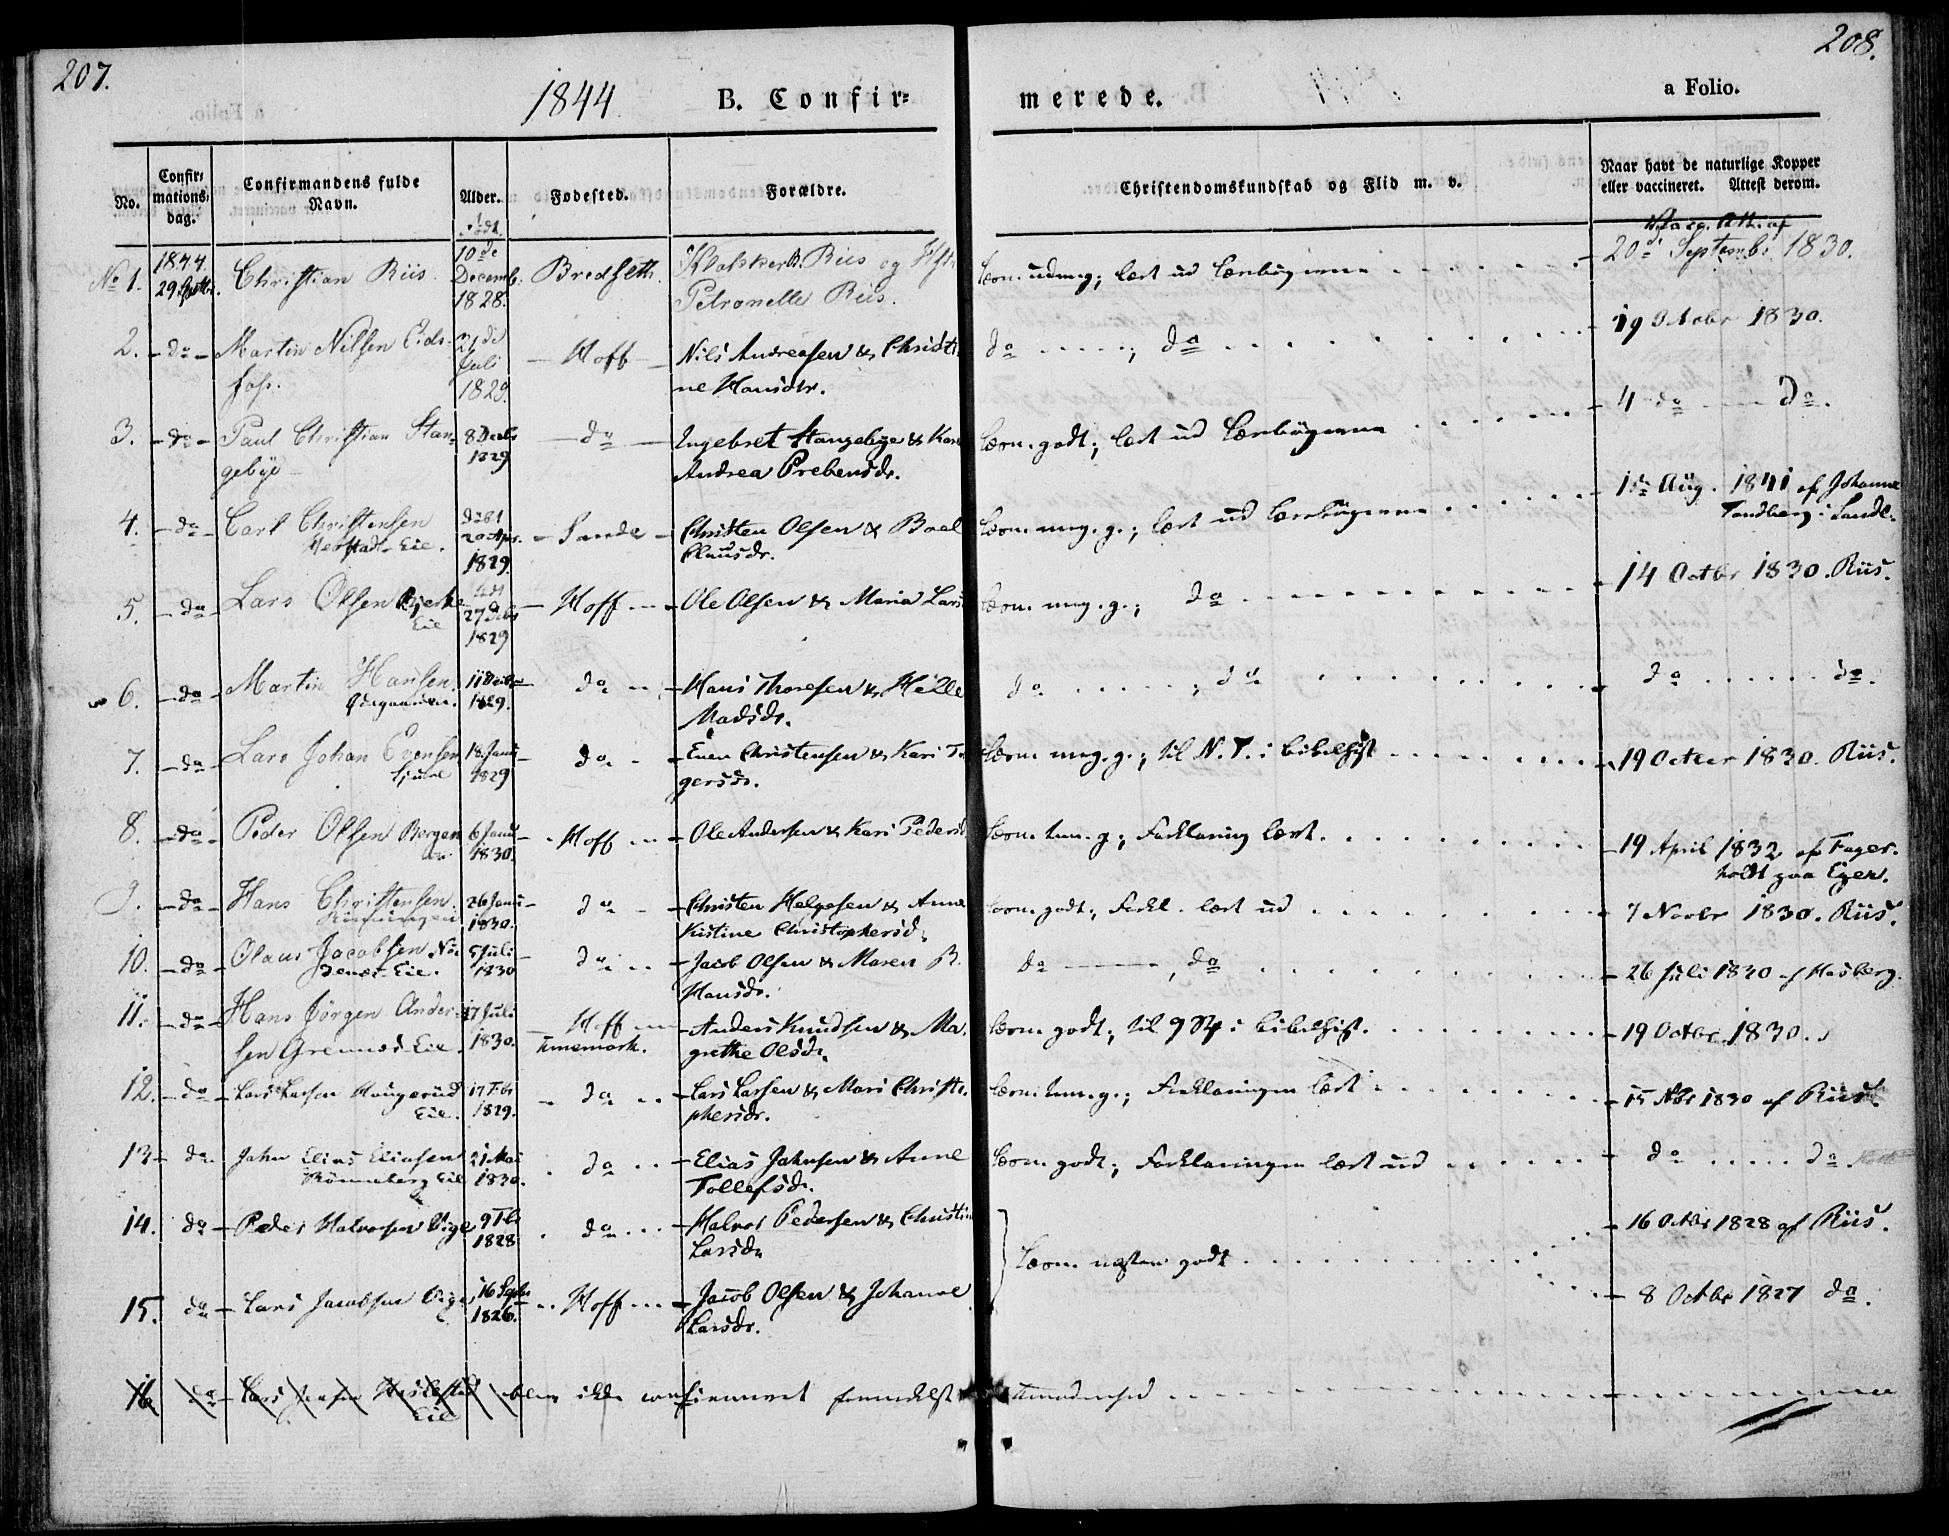 207.
208.
1844. B. Confir= merede.
a Folio.
No.
Confir=
mations=
dag.
Confirmandens fulde
Navn.
Alder.
Fødested.
Forældre.
Christendomskundskab og Flid m. v.
Naar havt de naturlige Kopper
eller vaccineret. Attest derom.
Født.
No 1. 1844 29 Christian Riis. 10de Decemb: 1828. Bredseth Klokker R. Riis og
Petronelle Riis.
udmg; læst ud Lærebøgerne
20de Septembr 1830.
2. - do - Martin Nilsen Eids-
fos. 21de Juli 1829. - Hoff - Nils Andreasen & Christi-
ne Hansdtr.
do ; do
19 Octobr 1830.
3. - do - Paul Christian Stan-
gebye 8 Decbr 1829 - do - Ingebret Stangebye & Karen
Andrea Prebensdr.
godt; læst ud Lærebøgerne
4 do do.
4. - do - Carl Christensen
Eie. døbt 20 Apr. 1829. - Sande - Christen Olsen & Boel
Clausdr.
mg. g.; læst ud Lærebøgerne
Aug. 1841 af Johanne
Tandberg i Sande.
5. - do - Lars Olsen
Eie 27 1829 - Hoff - Ole Olsen & Maria Lars
mg. g.; do
14 Octbr 1830. Riis.
6. - do - Martin Hansen
11 1829. do - Hans Thoresen & Helle
Madsdr.
do ; do
do do.
7. - do - Lars Johan Evensen
18 Janu 1829 - do - Even Christensen & Kari
gersdr.
mg. g.; til N. T. i Bibelhist
19 Octbr 1830. Riis.
8. - do - Peder Olsen Borgen
6 Janu 1830. - Hoff - Ole Andersen & Kari Pedersd
tem. g; Forklaring læst.
19 April 1832 af Fager-
holdt paa Eger.
9. - do - Hans Christensen
26 Janu 1830. - do - Christen Helgesen & Anne
Kistine Christophersd.
godt; Forkl. læst ud
7 Novbr 1830. Riis.
10. - do - Olaus Jacobsen
Eie. 5 Juli 1830 - do - Jacob Olsen & Maren B.
Hansdr.
do , do
26 Juli 1830 af Hasberg.
11. - do - Hans Jørgen Ander-
sen Grennes Eie. 17 Juli 1830. Hoff
- Anders Knudsen & Ma-
grethe Olsdr.
godt; til i Bibelhist.
19 Octbr 1830.
12. - do - Lars Larsen Haugerud
Eie. 17 Fbr 1829. - do - Lars Larsen & Mari Christo-
phersdr.
tem. g.; Forklaringen læst
15 Nbr 1830 af Riis.
13 - do - John Elias Eliasen
Rønneberg Eie 21 Mai 1830. do - Elias Johnsen & Anne
Tollefsdr.
godt; Forklaringen læst ud
do do
14. do - Peder Halvorsen Vige 9 Fbr 1828 do - Halvor Pedersen & Christin
Larsdr
næsten godt
16 Octbr 1828 af Riis.
15. do - Lars Jacobsen Vige 16 Septbr 1826. - Hoff - Jacob Olsen & Johanne
Larsdr.
8 Octbr 1827 do.
16 do - Lars Jensen
Eie
blev ikke confirmeret formedelst